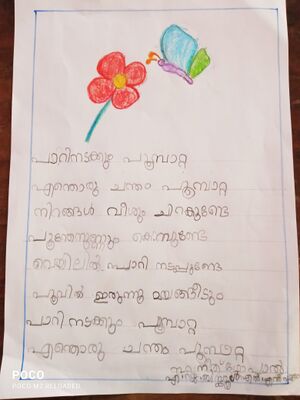 പാറിനടക്കും പൂമ്പാറ്റ
എന്തൊരു ചന്തം പൂമ്പാറ്റ
നിറങ്ങൾ വീശും ചിറകുണ്ടേ
പൂന്തേനുണ്ണും കൊമ്പുണ്ടേ
വെയിലിൽ പാറി നടപ്പുണ്ടേ
പൂവിൽ ഇരുന്നു മയങ്ങീടും
പാറി നടക്കും പൂമ്പാറ്റ
എന്തൊരു ചന്തം പൂമ്പാറ്റ
POCO
POCO M2 RELOADED